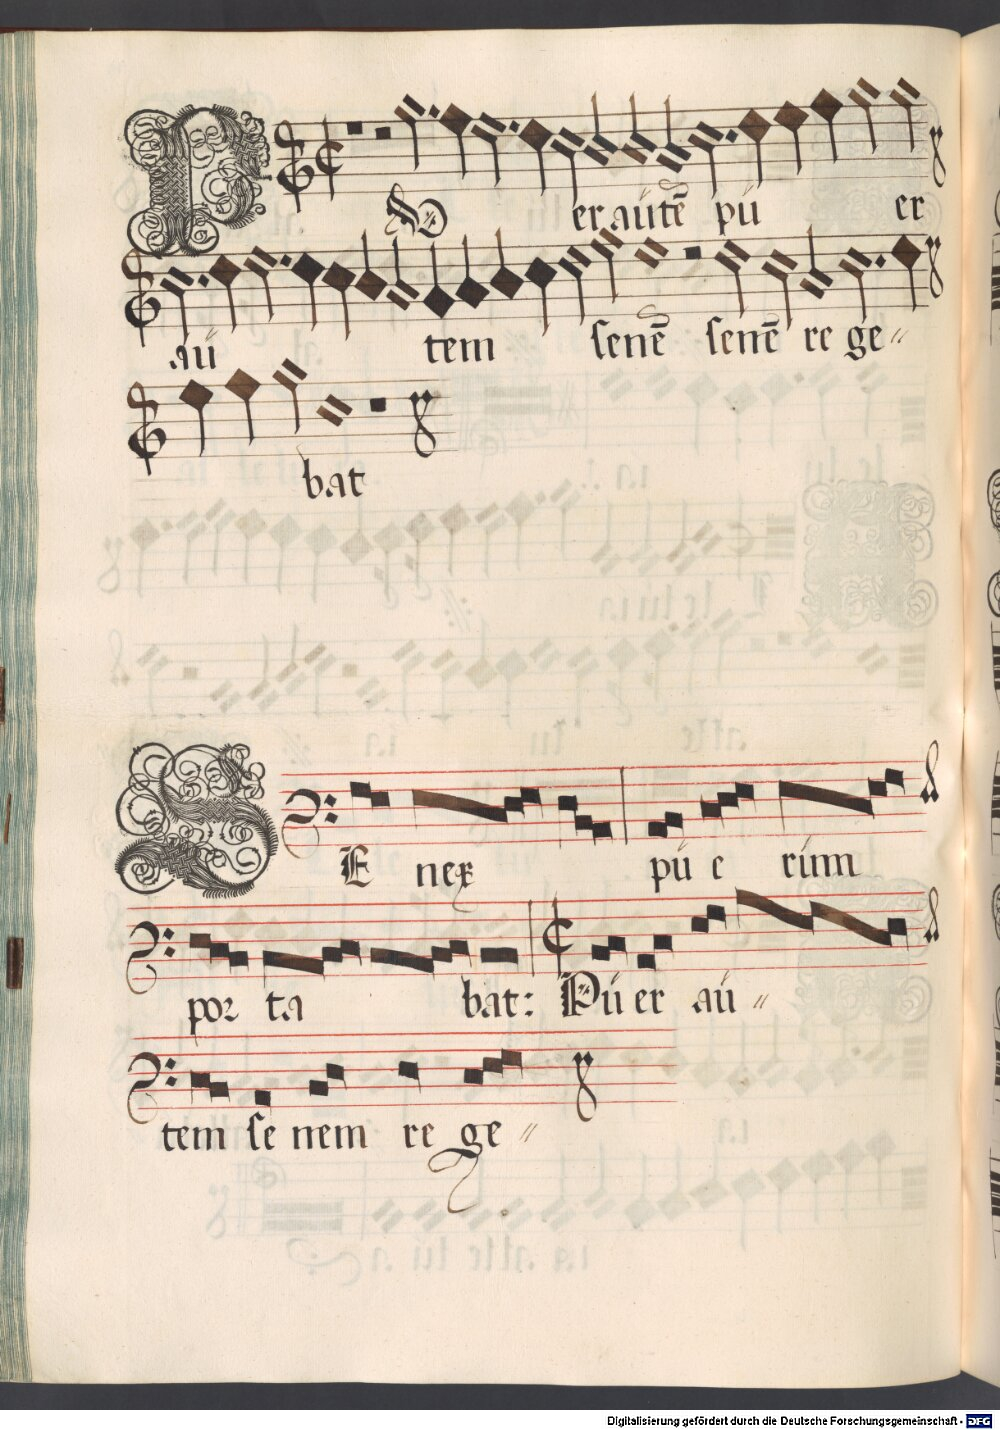 er autẽ pú er
aú tem senẽ senẽ re ge〃
bat
SE nex pú e rúm
por ta bat: Pú er aú〃
tem se nem re ge〃
Digitalisierung gefördert durch die Deutsche Forschungsgemeinschaft - DFG